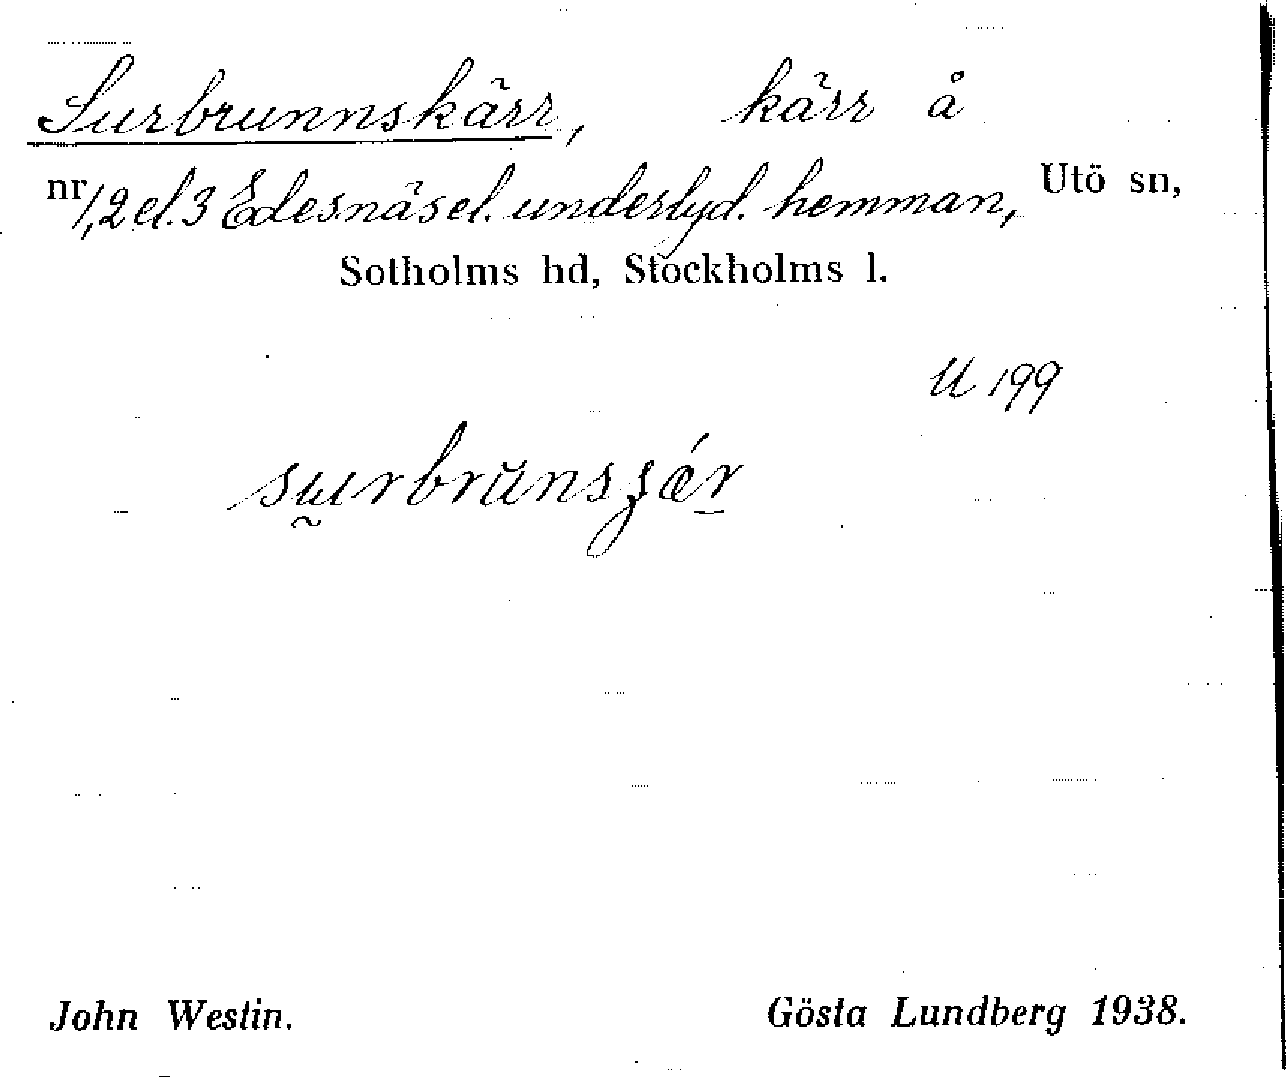 Surbrunnskärr, kärr å
nr 1,2 el. 3 Edesnäs el. underlyd. hemman, Utö sn,
Sotholms hd, Stockholms l.
U 199
sṵrbrŭnsʒǽr̲
John Westin. Gösta Lundberg 1938.